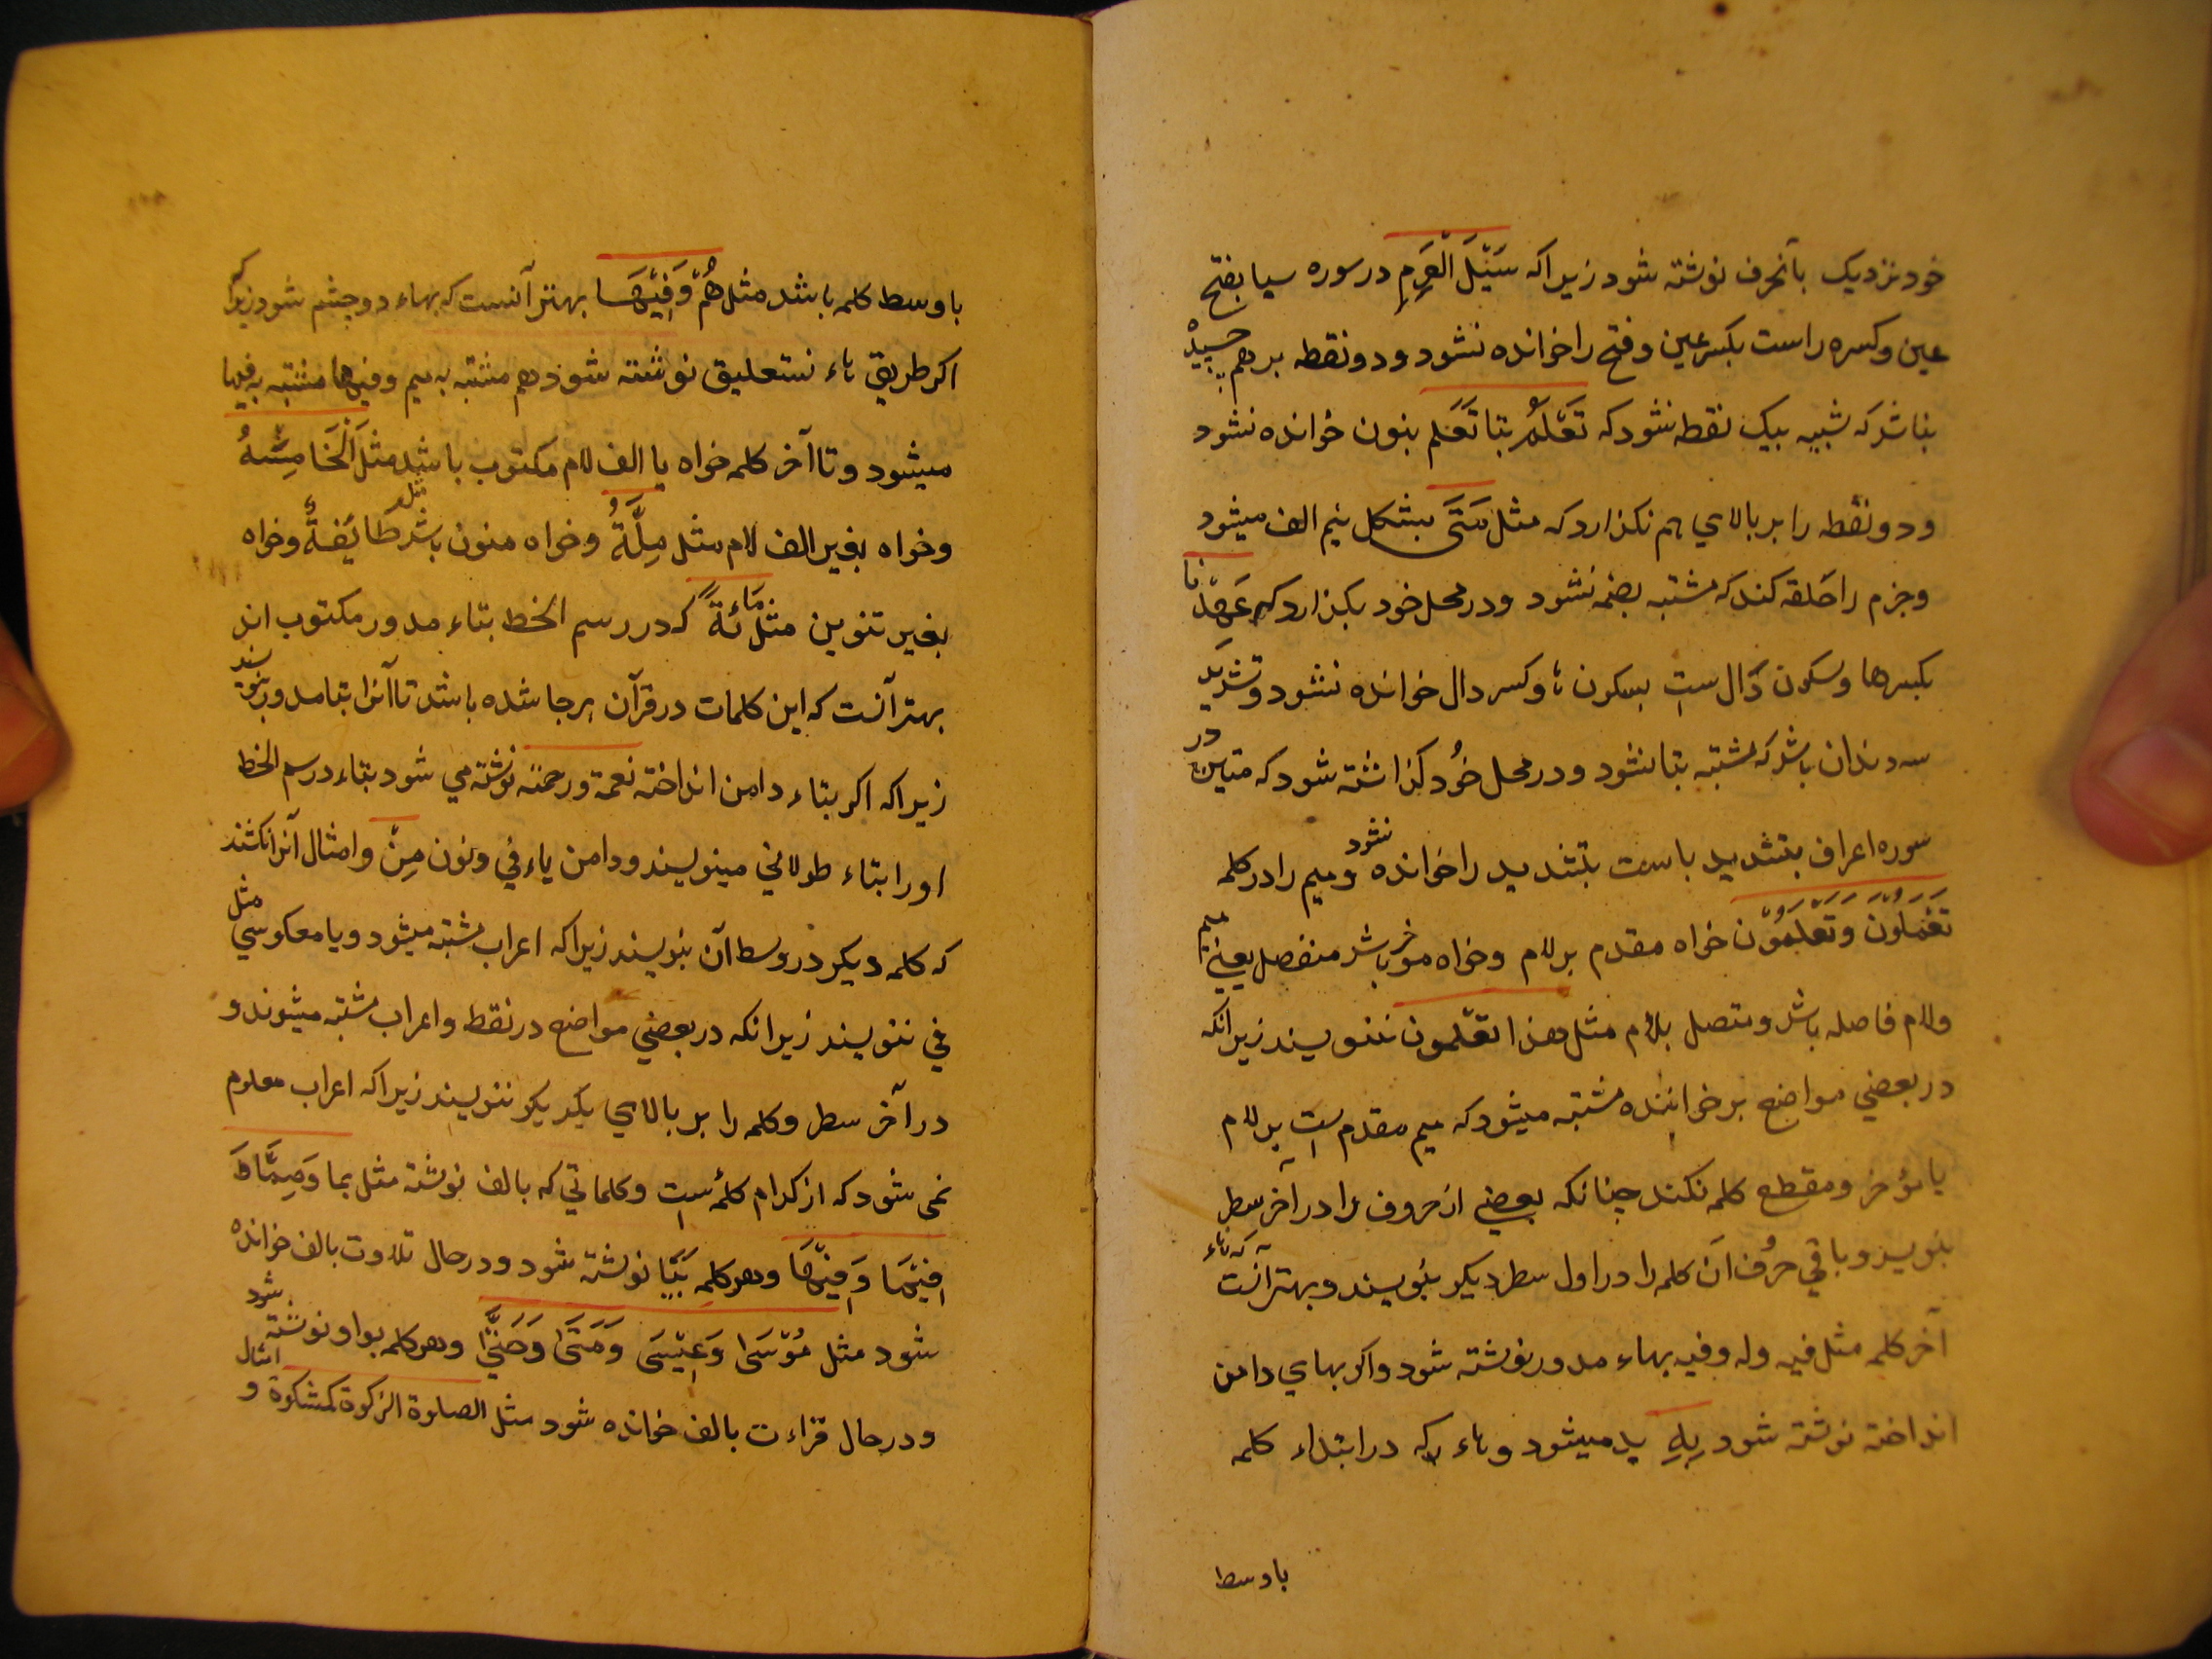 خود نزدیک بآنحرف نوشته شود زیراکه سَیْلَ الْعَرِمِ در سوره سبا بفتح
عین وکسره راست بکسر عین وفتح را خوانده نشود ودو نقطه بر هم چسپیده
نباشد که شبیه بیک نقطه نشود که تَعْلَمُ بتا نَعْلَم بنون خوانده نشود
ودو نقطه را بر بالای هم نکذارد که مثل مَتَی بشکل نیم الف میشود
وجزم را حلقه کند که مشتبه بضمه نشود ودر محل خود بکذارد که عَهِدْنا
بکسر ها وسکون دال ست بسکون ها وکسر دال خوانده نشود وتشدید
سه دندان باشد که مشتبه بتا نشود ودر محل خُود کذاشته شود که در
سوره اعراف بتشدید باست بتشدید را خوانده نشود ومیم را در کلمه
تَعْمَلُوْنَ وَتَعْلَمُوْن خواه مقدم بر لام وخواه موخر باشد منفصل یعنی میم
ولام فاصله باشد ومتصل بلام مثل هذا تعلمون ننویسند زیرانکه
در بعضی مواضع بر خواننده مشتبه میشود که میم مقدم ست بر لام
یا مؤخر ومقطع کلمه نکند چنانکه بعضی از حروف را در آخر سطر
بنویسد وباقی حرُف آن کلمه را در اول سطر دیکر بنُویسند وبهتر آنست که هاء
آخر کلمه مثل فیه وله وفیه بهاء مدور نوشته شود واکر بهای دامن
انداخته نوشته شود بِهِ ید میشود وهاء که در ابتداء کلمه
باوسط
باوسط کلمه باشد مثل هُمْ وَفِیْهَا بهتر آنست که بهاء دوچشم شود زیراکه
اکر طریق هاء نستعلیق نوشته شود هم مشتبه به میم وفیها مشتبه به فیما
میشود وتا آخر کلمه خواه با الف لام مکتوب باشد مثل اَلْخَامِسَةُ
وخواه بغیر الف لام مثل مِلَّةُ وخواه منون باشد مثل طَائِفَةٌ وخواه
بغیر تنوین مثل مِائَةَ که در رسم الخط بتاء مدور مکتوب اند
بهتر آنست که این کلمات در قرآن هر جا شده باشد تا آنرا بتا مدور بنویسند
زیراکه اکر بتاء دامن انداخته نعمة ورحمة نوشته می شود بتاء در رسم الخط
او را بتاء طولانی مینویسند ودامن یاء فی ونون مِنْ وامثال آنرا نکشند
که کلمه دیکر در وسط آن بنویسند زیراکه اعراب مشتبه میشود ویا معکوسی مثل
فی ننویسند زیرانکه در بعضی مواضع در نقط واعراب مشتبه میشوند و
در آخر سطر وکلمه را بر بالای یکدیکر ننویسند زیراکه اعراب معلوم
نمی شود که از کدام کلمه ست وکلماتی که بالف نوشته مثل بما
فِیْمَا وَفِیْهَا وهر کلمه بیا نوشته شود ودر حال تلاوت بالف خوانده
شود مثل مُوْسَی وَعِیْسَی وَمَتَی وهر کلمه بواو نوشته شود
ودر حال قراءت بالف خوانده شود مثل الصلوة الزکوة کمشکوة وامثال